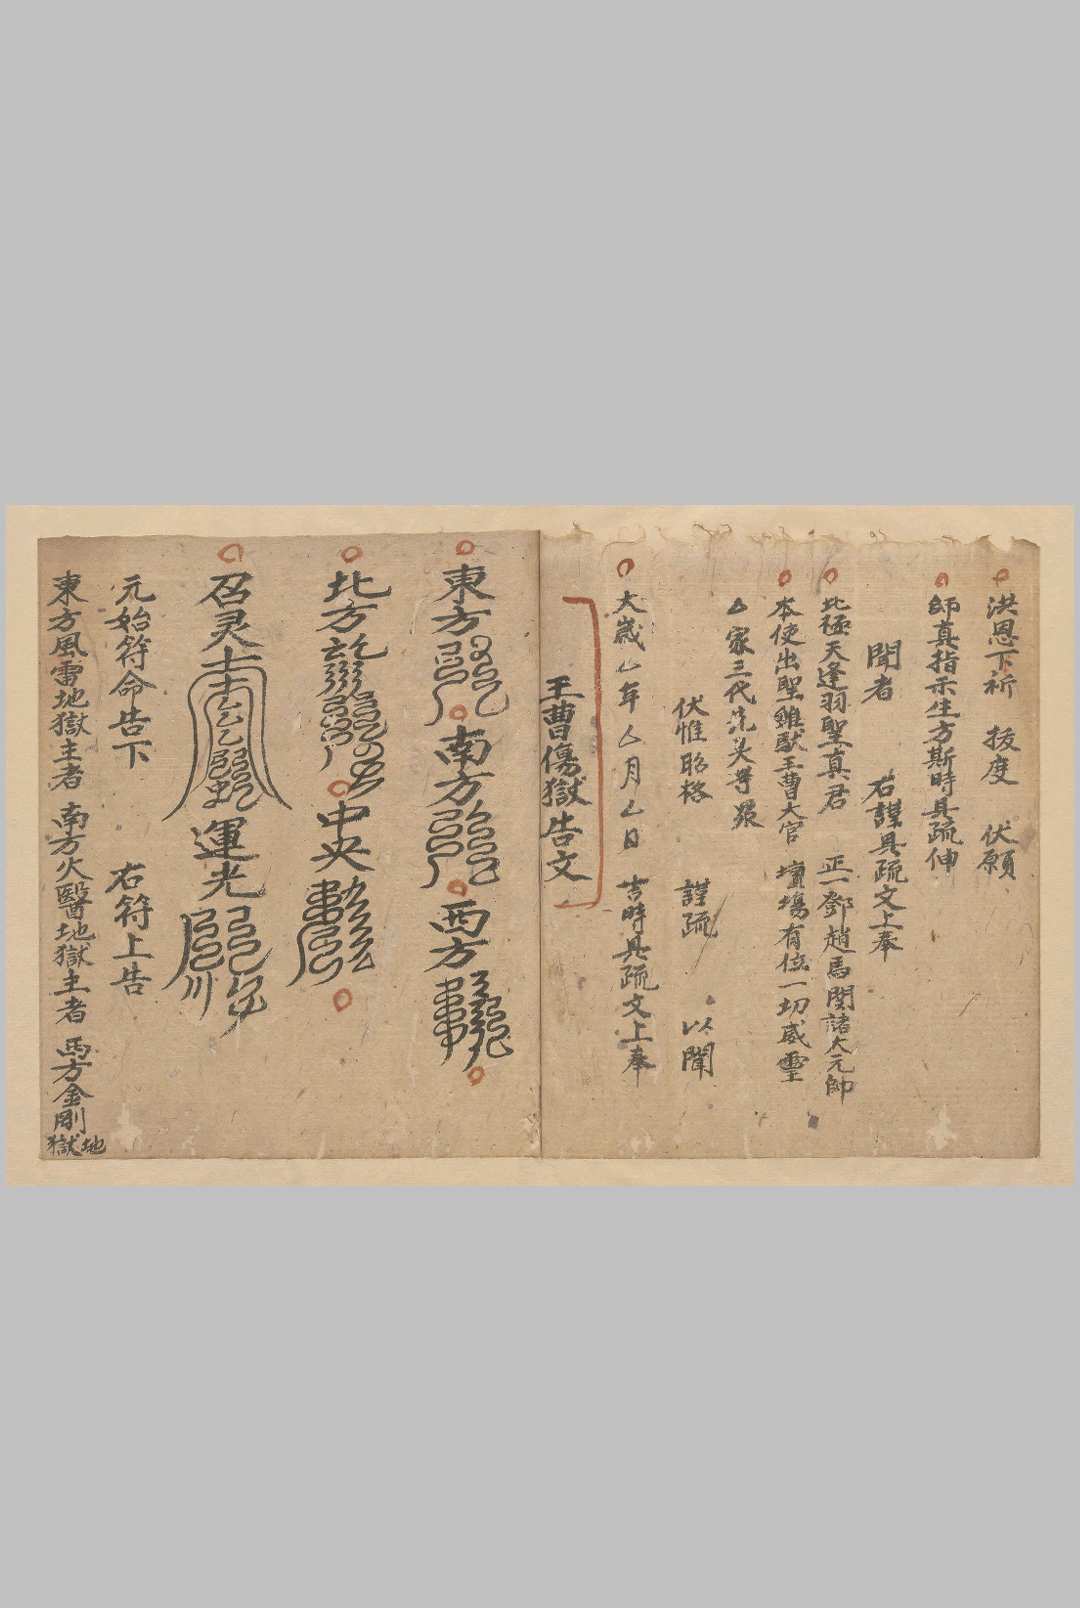 洪恩下祈 拔度 伏願
師真指示生方斯時具疏伸
聞者 右謹具疏文上奉
北極天逢羽聖真君 正一鄧趙馬関諸大元帥
本使出聖雖猷王曹大官 壇塲有位一切威靈
厶家三代先头等
伏惟昭格 謹疏 以聞
大歲厶年厶月厶日 吉時具疏文上奉
王曹傷獄告文
東方 南方 西方
北方 中央
召灵 運光
元始符命告下 右符上告
東方風雷地獄主者 南方火醫地獄主者 西方金剛地獄